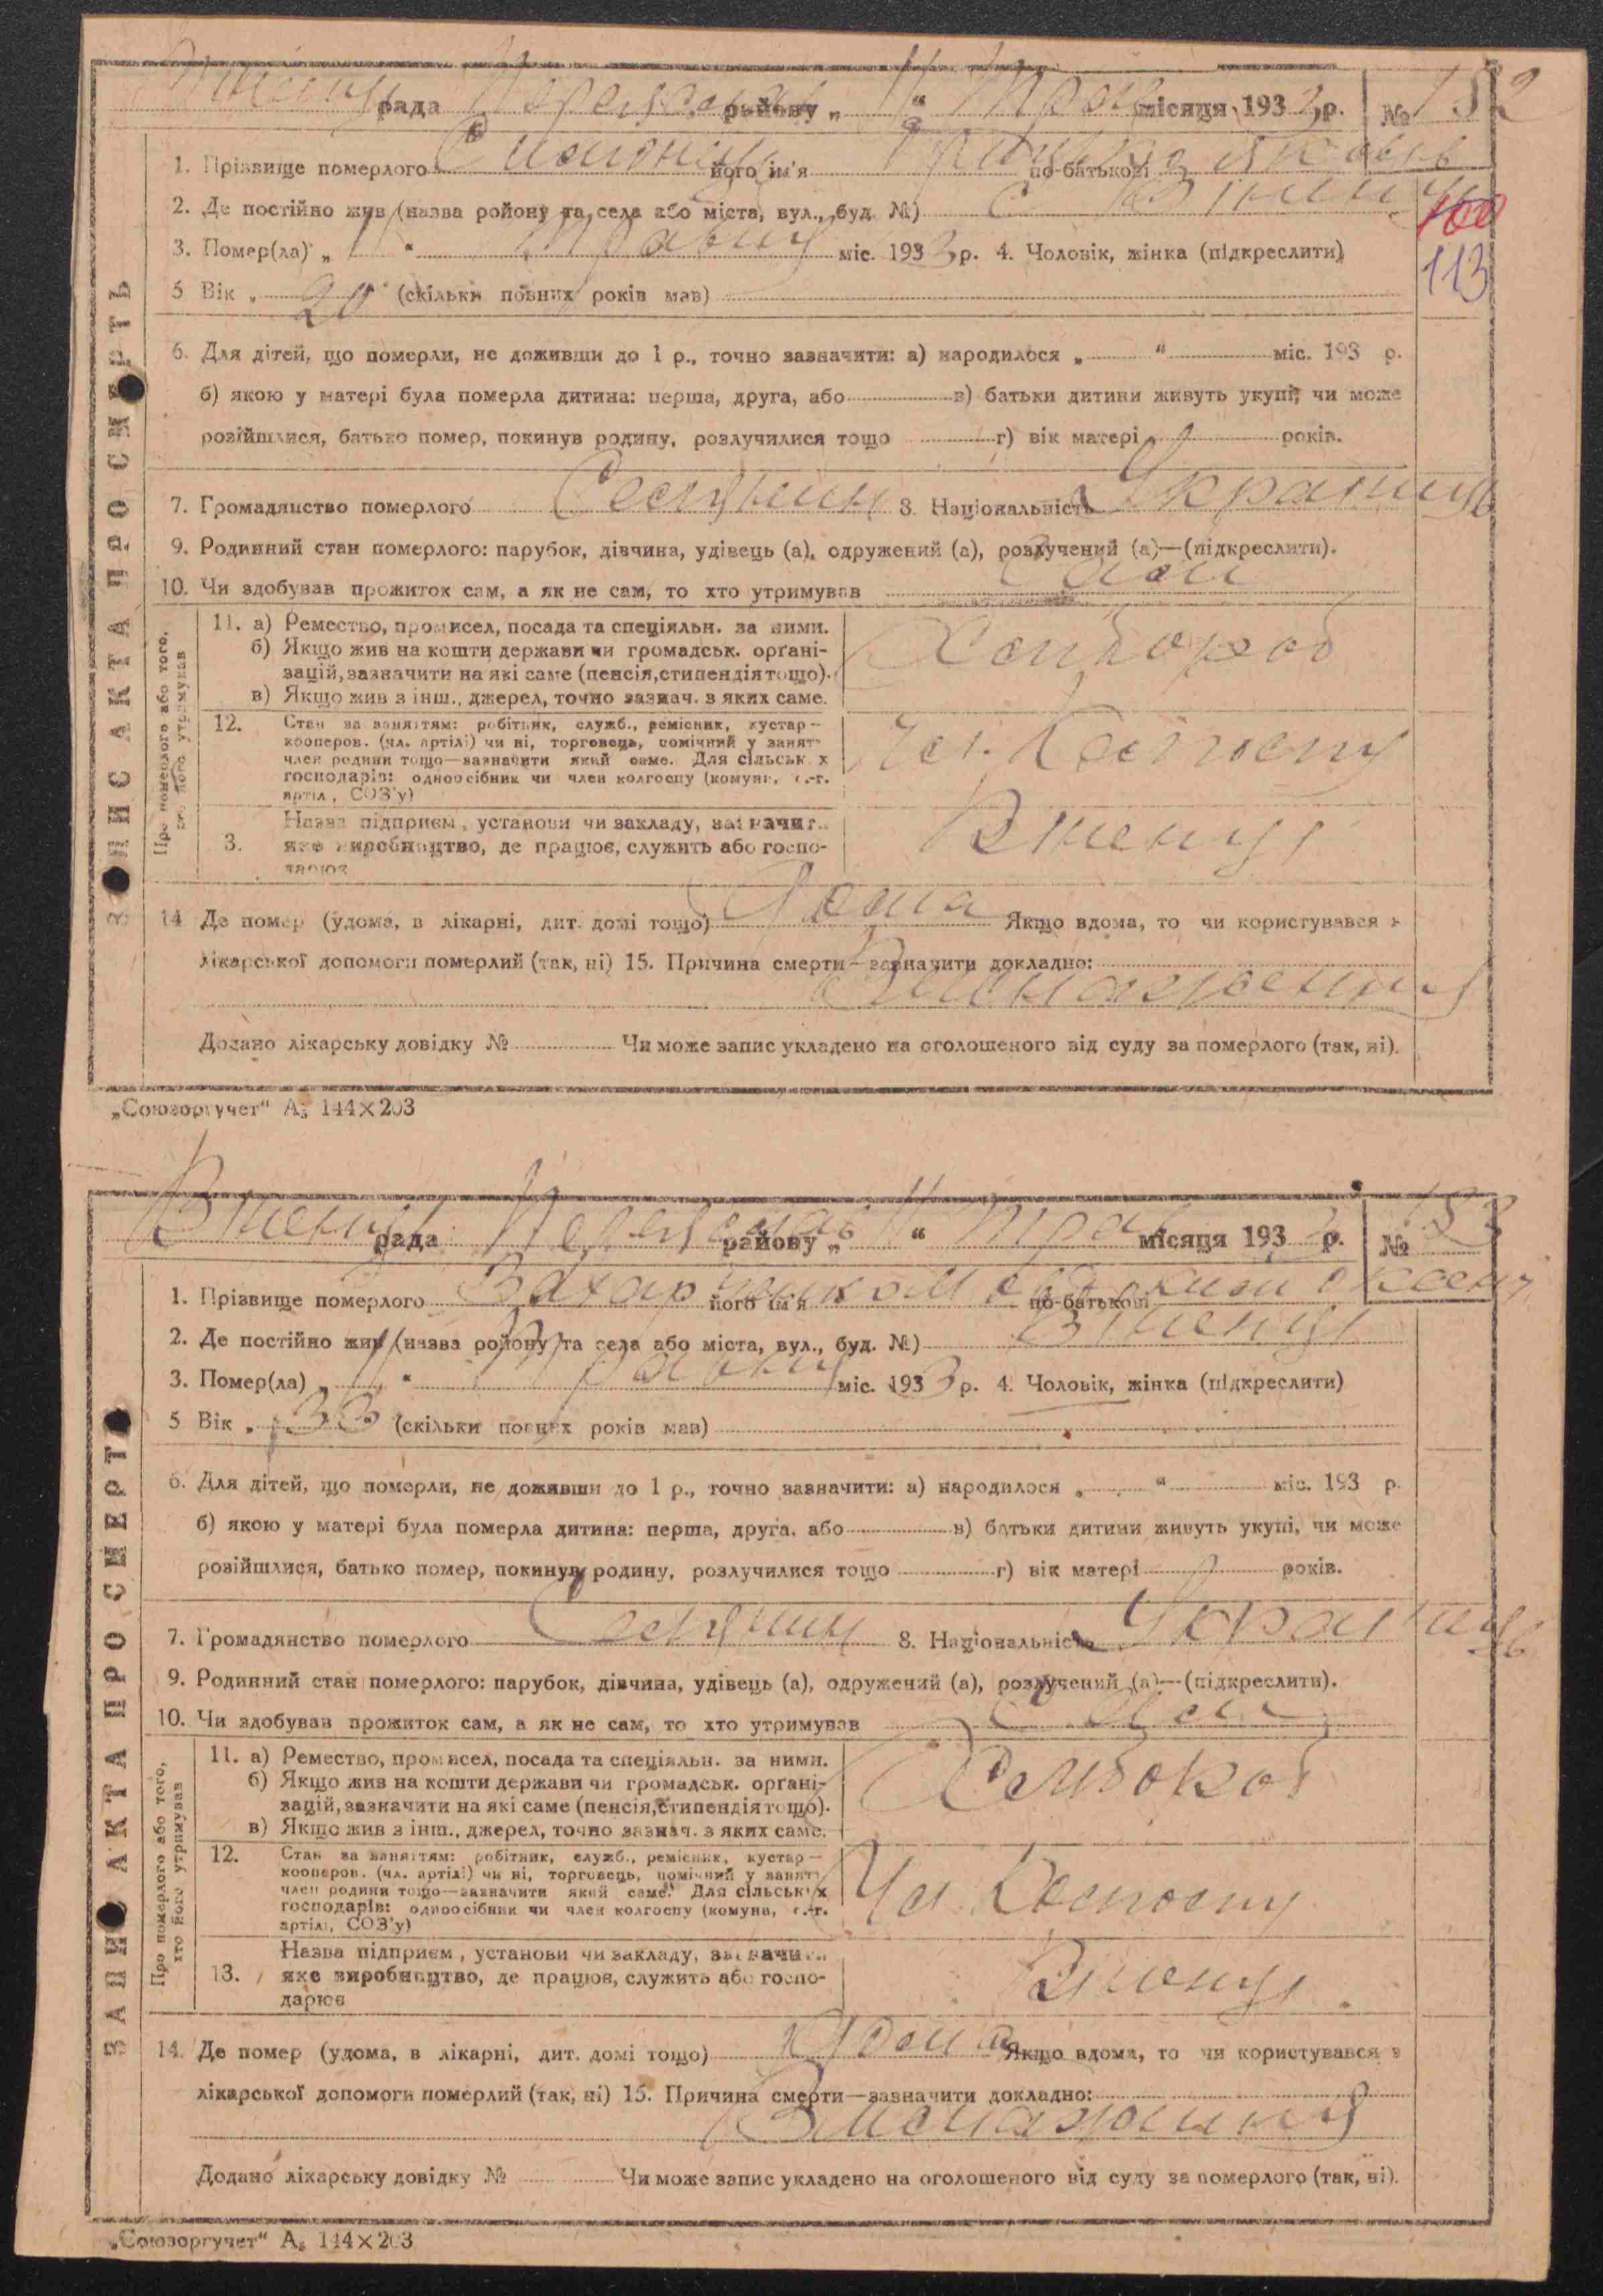 рада району „ “ місяця 1933 р. № 152
1. Прізвище померлого його ім'я по-батькові
2. Де постійно жив (назва ройону та села або міста, вул., буд. №) с
3. Помер(ла) „ 11 “ Травня міс. 1933 р. 4. Чоловік, жінка (підкреслити)
100
113
5 Вік „ (скільки повних років мав)
6. Для дітей, що померли, не доживши до 1 р., точно зазначити: а) народилося „ “ міс. 193 р.
б) якою у матері була померла дитина: перша, друга, або в) батьки дитини живуть укупі, чи може
розійшлися, батько помер, покинув родину, розлучилися тощо г) вік матері років.
7. Громадянство померлого 8. Національність Українець
9. Родинний стан померлого: парубок, дівчина, удівець (а), одружений (а), розлучений (а)—(підкреслити).
10. Чи здобував прожиток сам, а як не сам, то хто утримував сам
ЗАПИС АКТА ПРО СМЕРТЬ
Про померлого або того,
хто його утримував
11. а) Ремество, промисел, посада та спеціяльн. за ними.
б) Якщо жив на кошти держави чи громадськ. орґані-
зацій, зазначити на які саме (пенсія, стипендія тощо).
в) Якщо жив з інш., джерел, точно зазнач. з яких саме.
Хлібороб
12. Стан за заняттям: робітник, служб., ремісник, кустар—
кооперов. (чл. артілі) чи ні, торговець, помічний у занят
член родини тощо—зазначити який саме. Для сільськ х
господарів: одноосібник чи член колгоспу (комуни, с.-г.
артіл, СОЗ'у)
Чл. Колгоспу
3. Назва підприєм, установи чи закладу, зазначит
яке виробництво, де працює, служить або госпо-
дарює
14 Де помер (удома, в лікарні, дит. домі тощо) Дома Якщо вдома, то чи користувався з
лікарської допомоги померлий (так, ні) 15. Причина смерти—зазначити докладно:
Виснаження
Додано лікарську довідку № Чи може запис укладено на оголошеного від суду за померлого (так, ні).
„Союзоргучет“ А₅ 144×203
рада району „ 11 “ місяця 193 р. № 153
1. Прізвище померлого його ім'я по-батькові
2. Де постійно жив (назва ройону та села або міста, вул., буд. №)
3. Помер(ла) „ 11 “ Травня міс. 1933 р. 4. Чоловік, жінка (підкреслити)
5 Вік „ 33 (скільки повних років мав)
6. Для дітей, що померли, не доживши до 1 р., точно зазначити: а) народилося „ “ міс. 193 р.
б) якою у матері була померла дитина: перша, друга, або в) батьки дитини живуть укупі, чи може
розійшлися, батько помер, покинув родину, розлучилися тощо г) вік матері років.
7. Громадянство померлого 8. Національність Українець
9. Родинний стан померлого: парубок, дівчина, удівець (а), одружений (а), розлучений (а)—(підкреслити).
10. Чи здобував прожиток сам, а як не сам, то хто утримував сам
ЗАПИС АКТА ПРО СМЕРТЬ
Про померлого або того,
хто його утримував
11. а) Ремество, промисел, посада та спеціяльн. за ними.
б) Якщо жив на кошти держави чи громадськ. орґані-
зацій, зазначити на які саме (пенсія, стипендія тощо).
в) Якщо жив з інш., джерел, точно зазнач. з яких саме.
Хлібороб
12. Стан за заняттям: робітник, служб., ремісник, кустар—
кооперов. (чл. артілі) чи ні, торговець, помічний у занят
член родини тощо—зазначити який саме. Для сільських
господарів: одноосібник чи член колгоспу (комуна, с.-г.
артілі, СОЗ'у)
Чл Колгоспу
13. Назва підприєм, установи чи закладу, зазначити
яке виробництво, де працює, служить або госпо-
дарює
14. Де помер (удома, в лікарні, дит. домі тощо) Удома Якщо вдома, то чи користувався з
лікарської допомоги померлий (так, ні) 15. Причина смерти—зазначити докладно:
Виснаження
Додано лікарську довідку № Чи може запис укладено на оголошеного від суду за померлого (так, ні).
„Союзоргучет“ А₅ 144×203